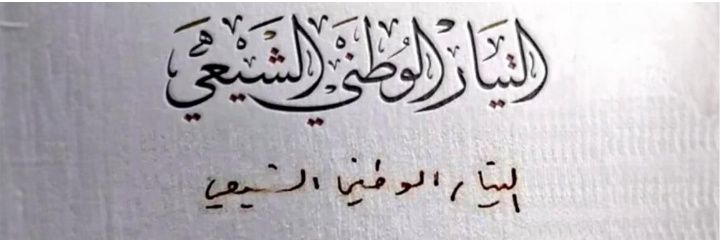 التيار الوطني الشيعي
التيار الوطني الشيعي